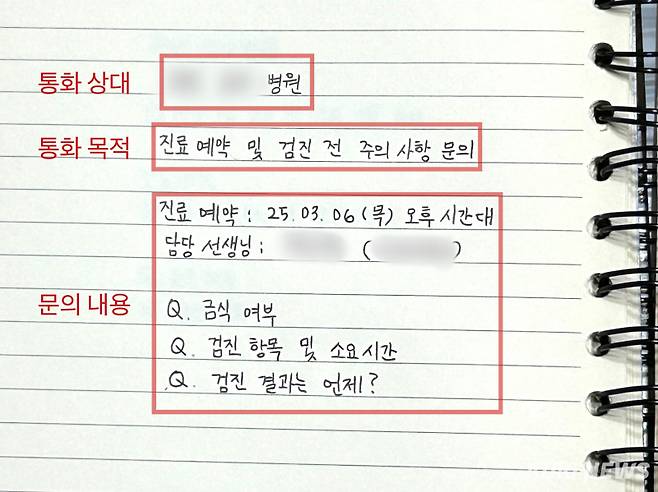 통화 상대
병원
통화 목적
진료 예약 및 검진 전 주의 사항 문의
진료 예약 : 25.03.06 (목) 오후 시간대
담당 선생님 : ( )
문의 내용
Q. 금식 여부
Q. 검진 항목 및 소요시간
Q. 검진 결과는 언제?
NEWS